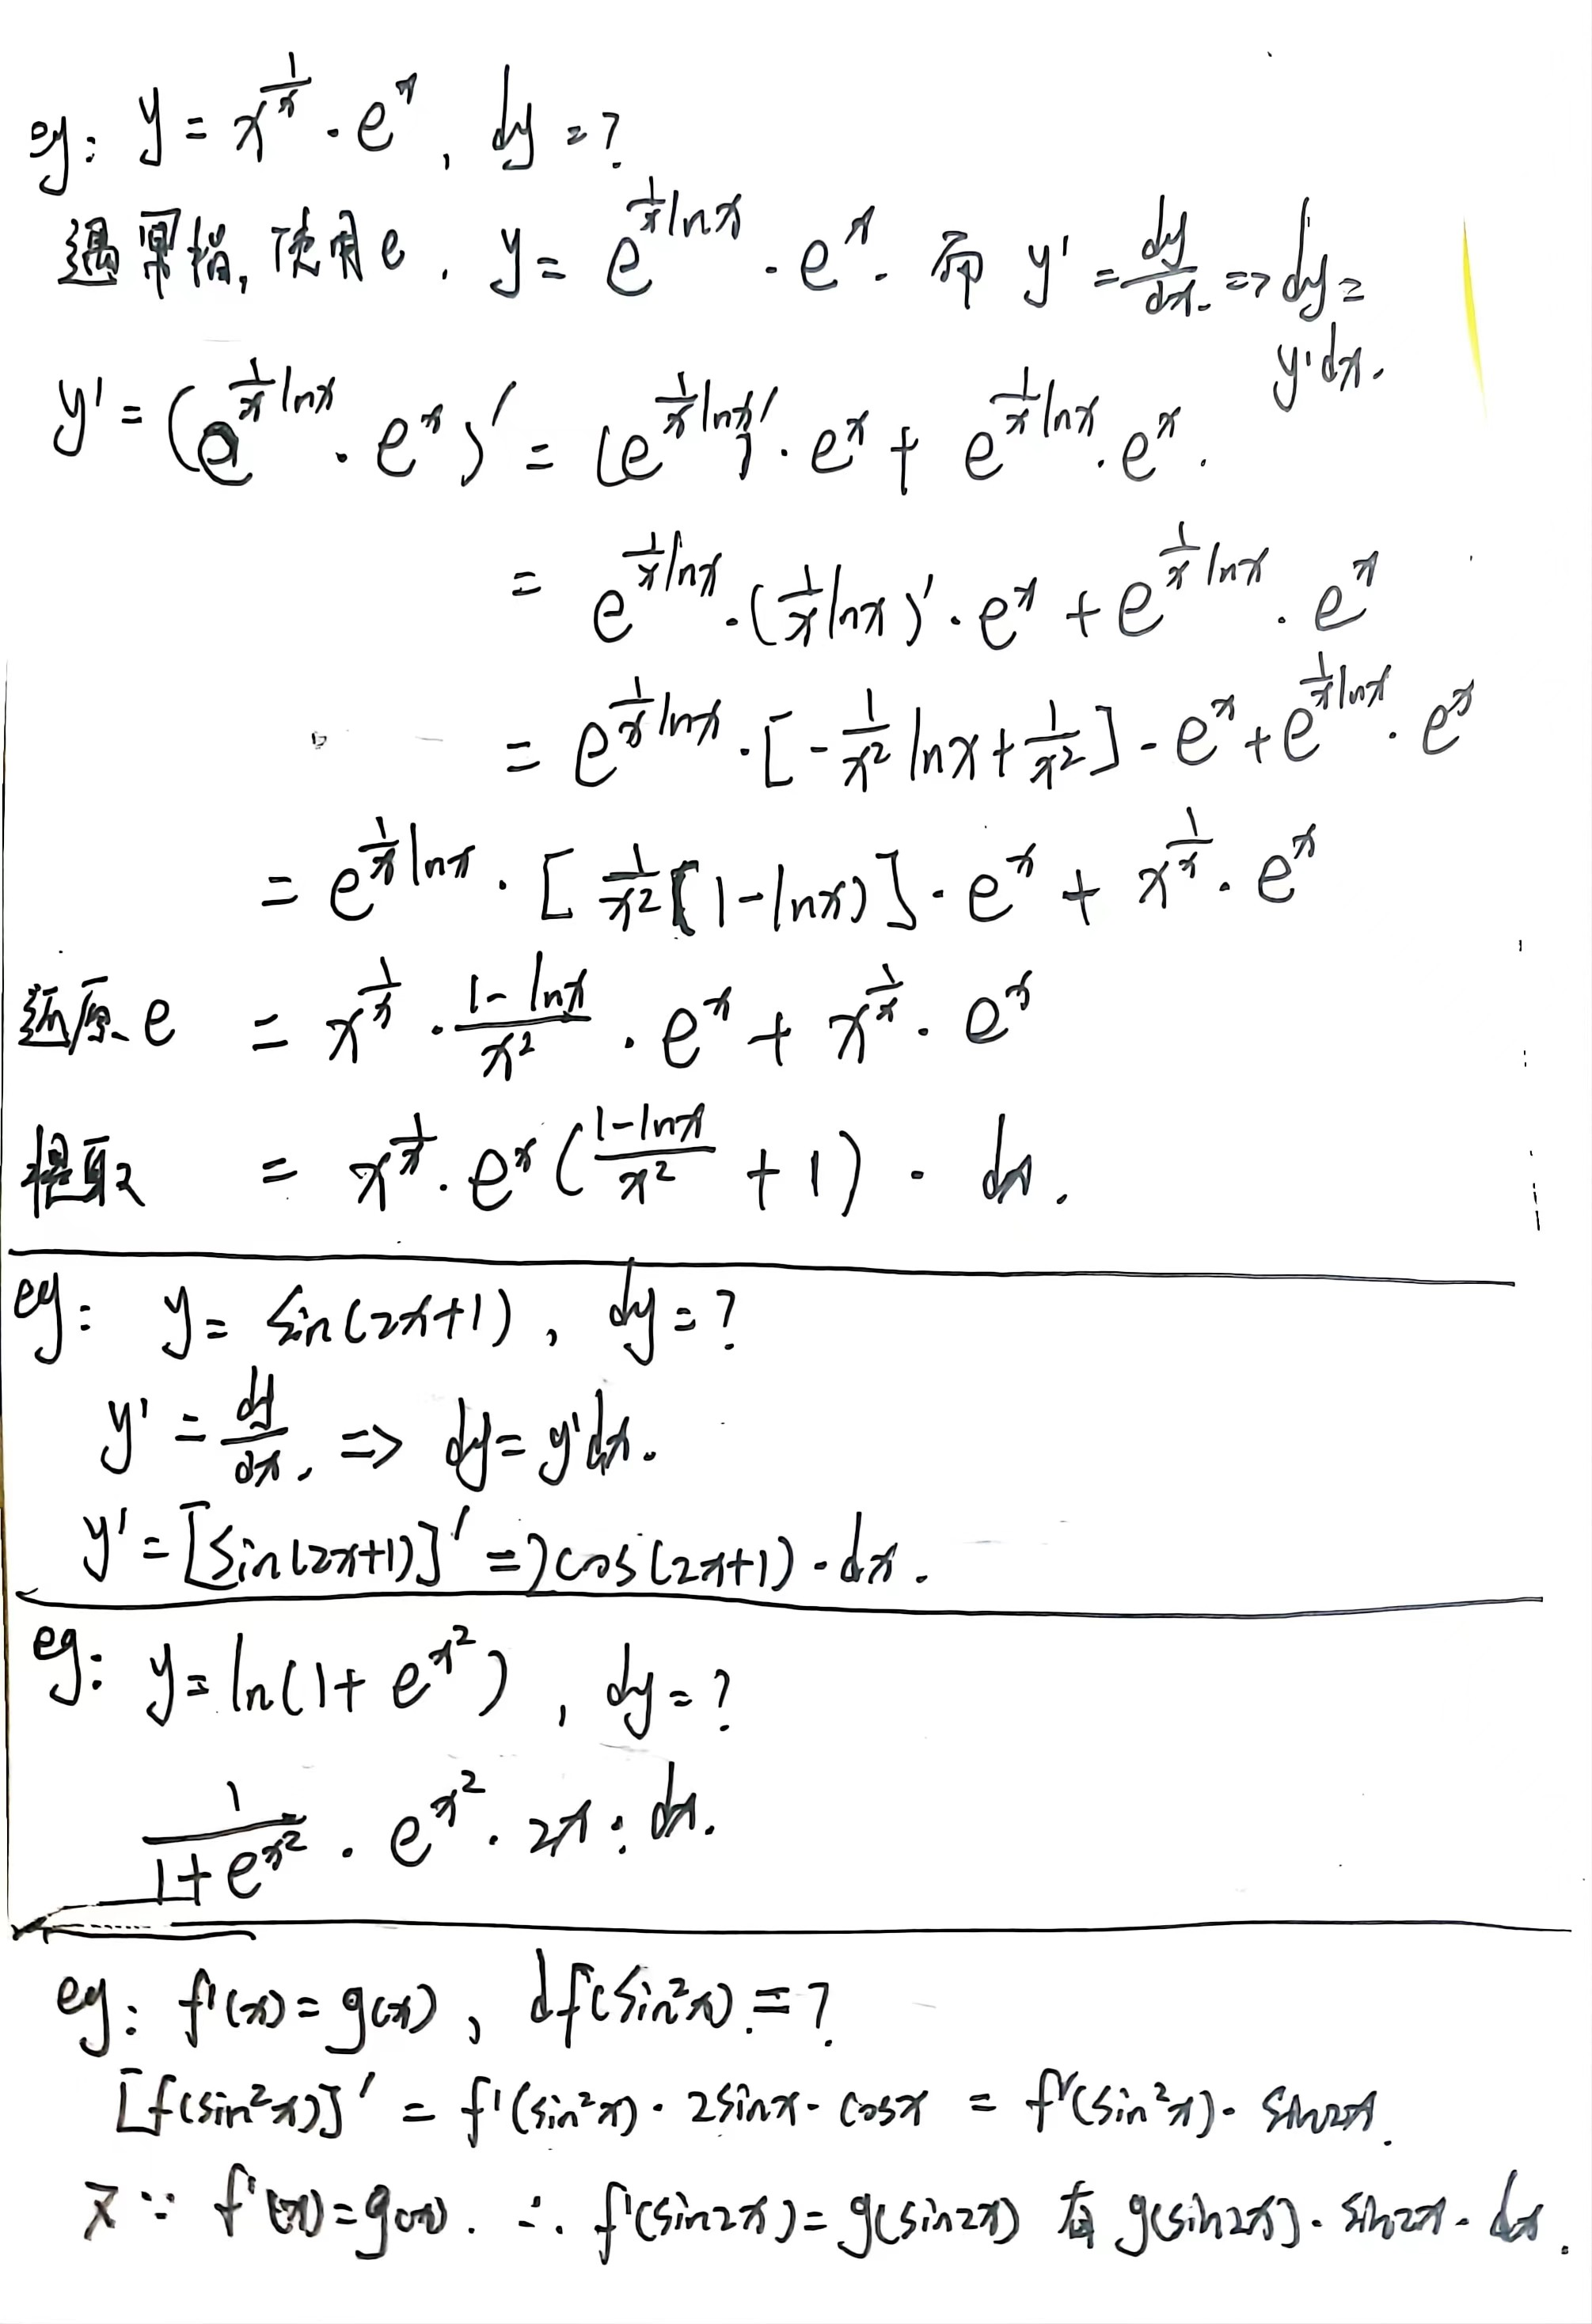 eg: y = x^{\frac{1}{x}} · e^x , dy = ?
遇幂指, 使用 e . y = e^{\frac{1}{x}lnx} · e^x . 而 y' = \frac{dy}{dx} . => dy =
y'dx.
y' = (e^{\frac{1}{x}lnx} · e^x)' = (e^{\frac{1}{x}lnx})' · e^x + e^{\frac{1}{x}lnx} · e^x .
= e^{\frac{1}{x}lnx} · (\frac{1}{x}lnx)' · e^x + e^{\frac{1}{x}lnx} · e^x
= e^{\frac{1}{x}lnx} · [-\frac{1}{x^2}lnx + \frac{1}{x^2}] · e^x + e^{\frac{1}{x}lnx} · e^x
= e^{\frac{1}{x}lnx} · [\frac{1}{x^2}(1-lnx)] · e^x + x^{\frac{1}{x}} · e^x
还原 e = x^{\frac{1}{x}} · \frac{1-lnx}{x^2} · e^x + x^{\frac{1}{x}} · e^x
提取 = x^{\frac{1}{x}} · e^x (\frac{1-lnx}{x^2} + 1) · dx .
eg: y = sin(2x+1) , dy = ?
y' = \frac{dy}{dx} . => dy = y'dx .
y' = [sin(2x+1)]' = 2cos(2x+1) · dx .
eg: y = ln(1+e^{x^2}) , dy = ?
\frac{1}{1+e^{x^2}} · e^{x^2} · 2x · dx .
eg: f'(x) = g(x) , df(sin²x) = ?
[f(sin²x)]' = f'(sin²x) · 2sinx · cosx = f'(sin²x) · sin2x .
又∵ f'(x) = g(x) . ∴ f'(sin2x) = g(sin2x) 有 g(sin2x) · sin2x · dx .